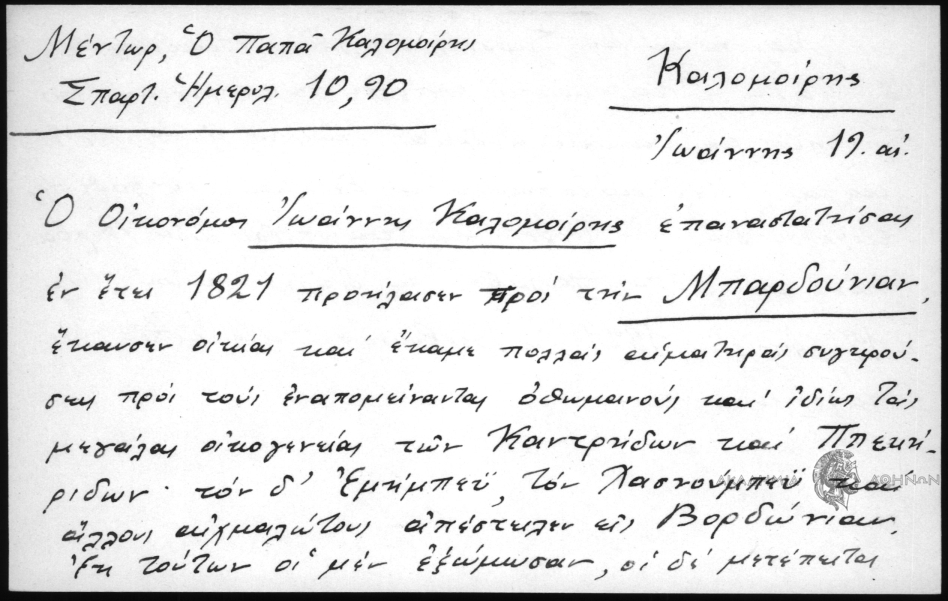 Μέντωρ, Ὁ Παπᾶ Καλομοίρης
Σπαρτ. Ἡμερολ. 10, 90
Καλομοίρης
Ἰωάννης 19. αἰ.
Ὁ Οἰκονόμος Ἰωάννης Καλομοίρης ἐπαναστατήσας
ἐν ἔτει 1821 προήλασεν πρὸς τὴν Μπαρδούνιαν,
ἔκαυσεν οἰκίας καὶ ἔκαμε πολλὰς αἱματηρὰς συγκρού-
σεις πρὸς τοὺς ἐναπομείναντας ὀθωμανοὺς καὶ ἰδίως τὰς
μεγάλας οἰκογενείας τῶν Καντρήδων καὶ
ρίδων· τὸν δ' Ἐμήμπεϋ, τὸν Χασνούμπεϋ καὶ
ἄλλους αἰχμαλώτους ἀπέστειλεν εἰς Βορδώνιαν.
Ἐκ τούτων οἱ μὲν ἐξώμωσαν, οἱ δὲ μετέπειτα
ΑΘΗΝΩΝ